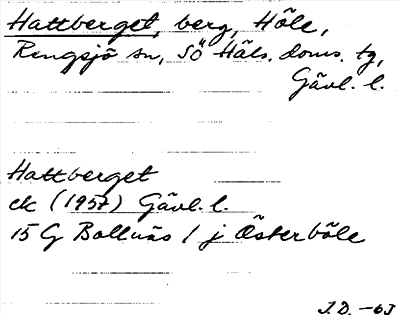 Hattberget, berg, Höle,
Rengsjö sn, SÖ Häls. doms. tg,
Gävl. l.
Hattberget
ek (1957) Gävl. l.
15 G Bollnäs 1 j Österböle
J.D. -63